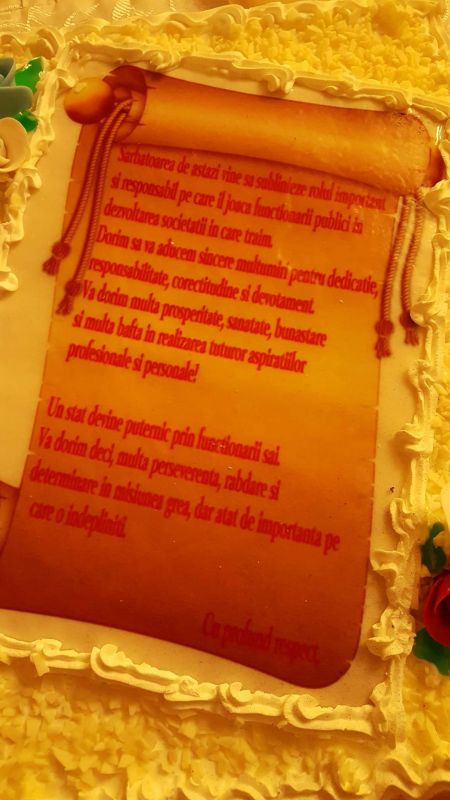 Sarbatoarea de astazi vine sa sublinieze rolul important
si responsabil pe care il joaca functionarii publici in
dezvoltarea societatii in care traim.
Dorim sa va aducem sincere multumiri pentru dedicatie,
responsabilitate, corectitudine si devotament.
Va dorim multa prosperitate, sanatate, bunastare
si multa bafta in realizarea tuturor aspiratiilor
profesionale si personale!
Un stat devine puternic prin functionarii sai.
Va dorim deci, multa perseverenta, rabdare si
determinare in misiunea grea, dar atat de importanta pe
care o indepliniti.
Cu profund respect,